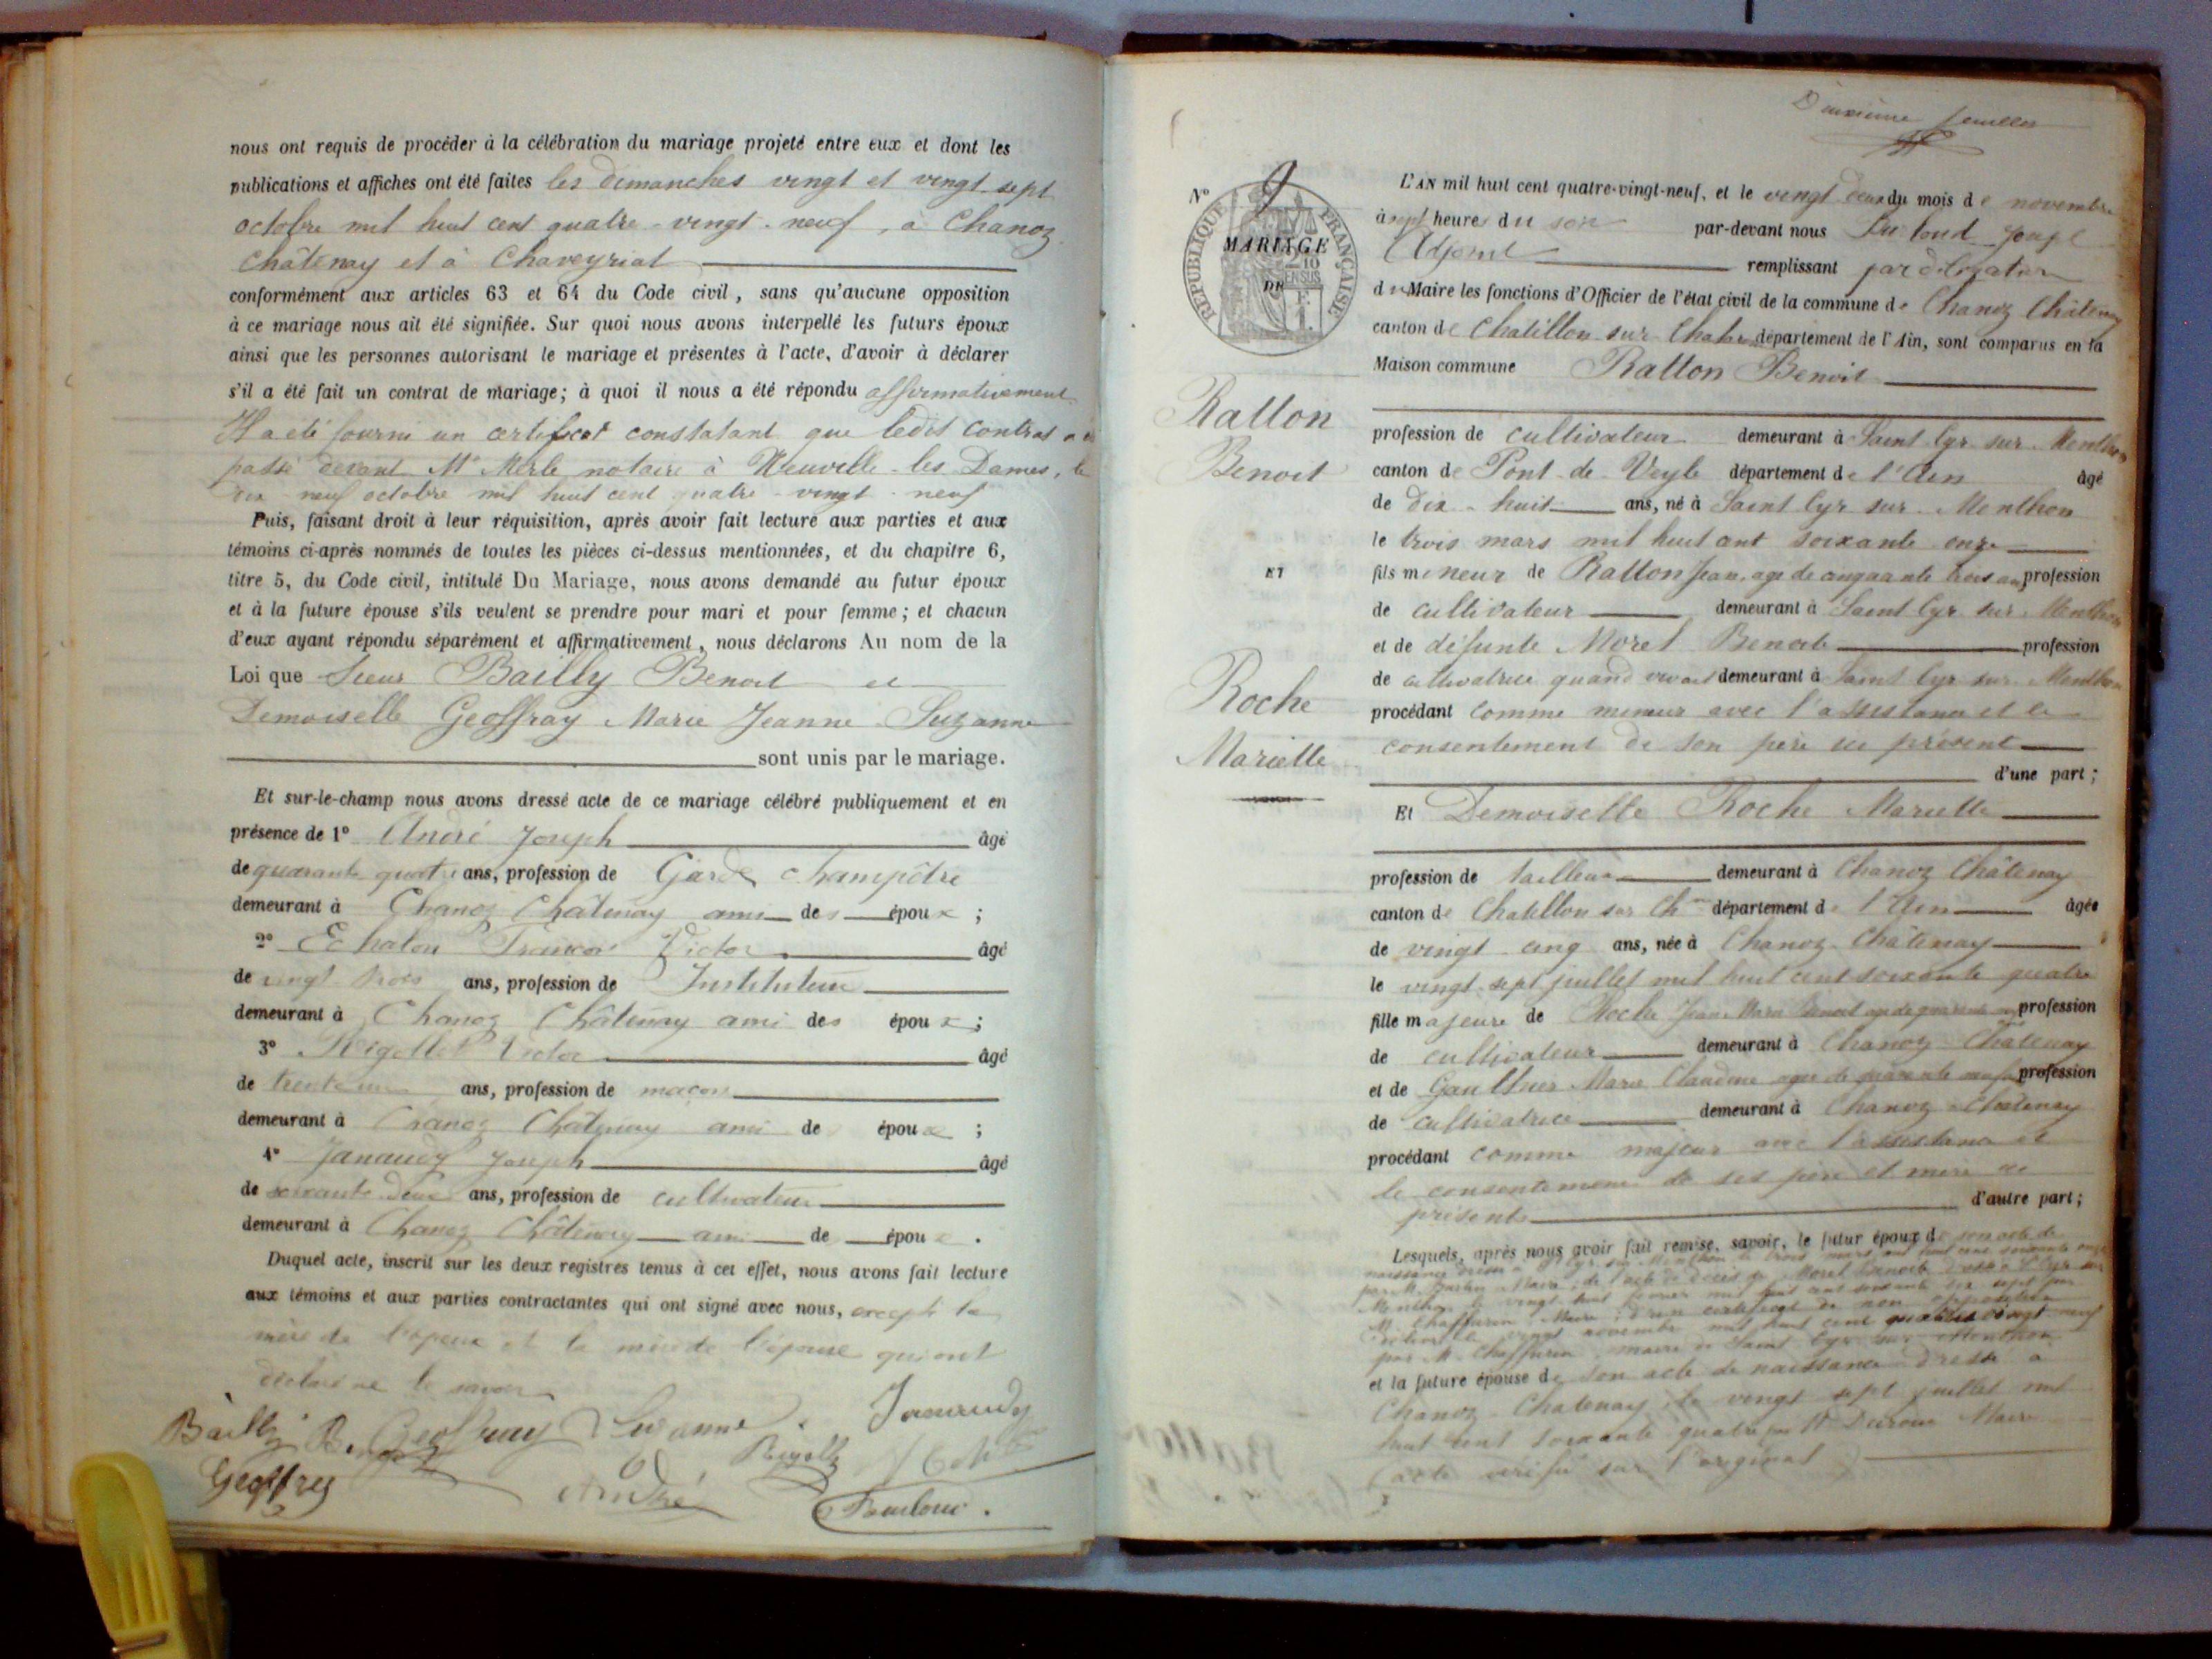 nous ont requis de procéder à la célébration du mariage projeté entre eux et dont les
publications et affiches ont été faites les dimanches vingt et vingt-sept
octobre mil huit cent quatre-vingt-neuf, à Chanoz
Châtenay et à Chaveyriat
conformément aux articles 63 et 64 du Code civil, sans qu'aucune opposition
à ce mariage nous ait été signifiée. Sur quoi nous avons interpellé les futurs époux
ainsi que les personnes autorisant le mariage et présentes à l'acte, d'avoir à déclarer
s'il a été fait un contrat de mariage; à quoi il nous a été répondu affirmativement
Il a été fourni un certificat constatant que ledit contrat a
passé devant Me Merle notaire à Neuville-les-Dames, le
dix-neuf octobre mil huit cent quatre-vingt-neuf
Puis, faisant droit à leur réquisition, après avoir fait lecture aux parties et aux
témoins ci-après nommés de toutes les pièces ci-dessus mentionnées, et du chapitre 6,
titre 5, du Code civil, intitulé Du Mariage, nous avons demandé au futur époux
et à la future épouse s'ils veulent se prendre pour mari et pour femme; et chacun
d'eux ayant répondu séparément et affirmativement, nous déclarons Au nom de la
Loi que Sieur Bailly Benoit et
Demoiselle Geoffray Marie Jeanne Suzanne
sont unis par le mariage.
Et sur-le-champ nous avons dressé acte de ce mariage célébré publiquement et en
présence de 1° André Joseph âgé
de quarante quatre ans, profession de Garde champêtre
demeurant à Chanoz Châtenay ami des époux;
2° Echalon François Victor âgé
de vingt trois ans, profession de Instituteur
demeurant à Chanoz Châtenay ami des époux;
3° Rigollet Victor âgé
de trente un ans, profession de maçon
demeurant à Chanoz Châtenay ami de époux;
4° Janaudy Joseph âgé
de soixante deux ans, profession de cultivateur
demeurant à Chanoz Châtenay ami de époux.
Duquel acte, inscrit sur les deux registres tenus à cet effet, nous avons fait lecture
aux témoins et aux parties contractantes qui ont signé avec nous, excepté la
mère de l'époux et la mère de l'épouse qui ont
déclaré ne le savoir
Bailly B. Geoffray Suzanne Janaudy
Geoffray André Rigollet
Deuxième feuillet
N° 9
RÉPUBLIQUE FRANÇAISE
MARIAGE
DE
L'AN mil huit cent quatre-vingt-neuf, et le vingt deux du mois de novembre
à sept heures du soir par-devant nous Joseph
Adjoint remplissant par délégation
du Maire les fonctions d'Officier de l'état civil de la commune de Chanoz Châtenay
canton de Chatillon sur Chalar département de l'Ain, sont comparus en la
Maison commune Ratton Benoit
Ratton
Benoit
profession de cultivateur demeurant à Saint Cyr sur Menthon
canton de Pont-de-Veyle département de l'Ain âgé
de dix-huit ans, né à Saint Cyr sur Menthon
le trois mars mil huit cent soixante onze
ET
fils mineur de Ratton Jean, age de cinquante trois ans profession
de cultivateur demeurant à Saint Cyr sur Menthon
et de défunte Morel Benoite profession
de cultivatrice quand vivait demeurant à Saint Cyr sur Menthon
procédant comme mineur avec l'assistance et le
consentement de son père ici présent
d'une part;
Roche
Mariette
Et Demoiselle Roche Mariette
profession de tailleuse demeurant à Chanoz Châtenay
canton de Chatillon sur Ch département de l'Ain âgée
de vingt cinq ans, née à Chanoz-Châtenay
le vingt-sept juillet mil huit cent soixante quatre
fille majeure de Roche Jean Marie Benoit age de quarante profession
de cultivateur demeurant à Chanoz Châtenay
et de Gaulthier Marie Claudine agée de quarante profession
de cultivatrice demeurant à Chanoz Châtenay
procédant comme majeur avec l'assistance et
le consentement de ses père et mère ici
présents d'autre part;
Lesquels, après nous avoir fait remise, savoir, le futur époux de son acte de
naissance dressé à St Cyr sur Menthon le trois mars mil huit cent soixante onze
par M. Maire, de l'acte de décès de Morel Benoite dressé à St Cyr sur
Menthon le vingt huit février mil huit cent soixante dix sept par
M. Chaffurin Maire, d'un certificat de non opposition
délivré le vingt novembre mil huit cent quatre vingt neuf
par M. Chaffurin maire de Saint Cyr sur Menthon
et la future épouse de son acte de naissance dressé à
Chanoz-Chatenay le vingt sept juillet mil
huit cent soixante quatre par M. Maire
(acte vérifié sur l'original)